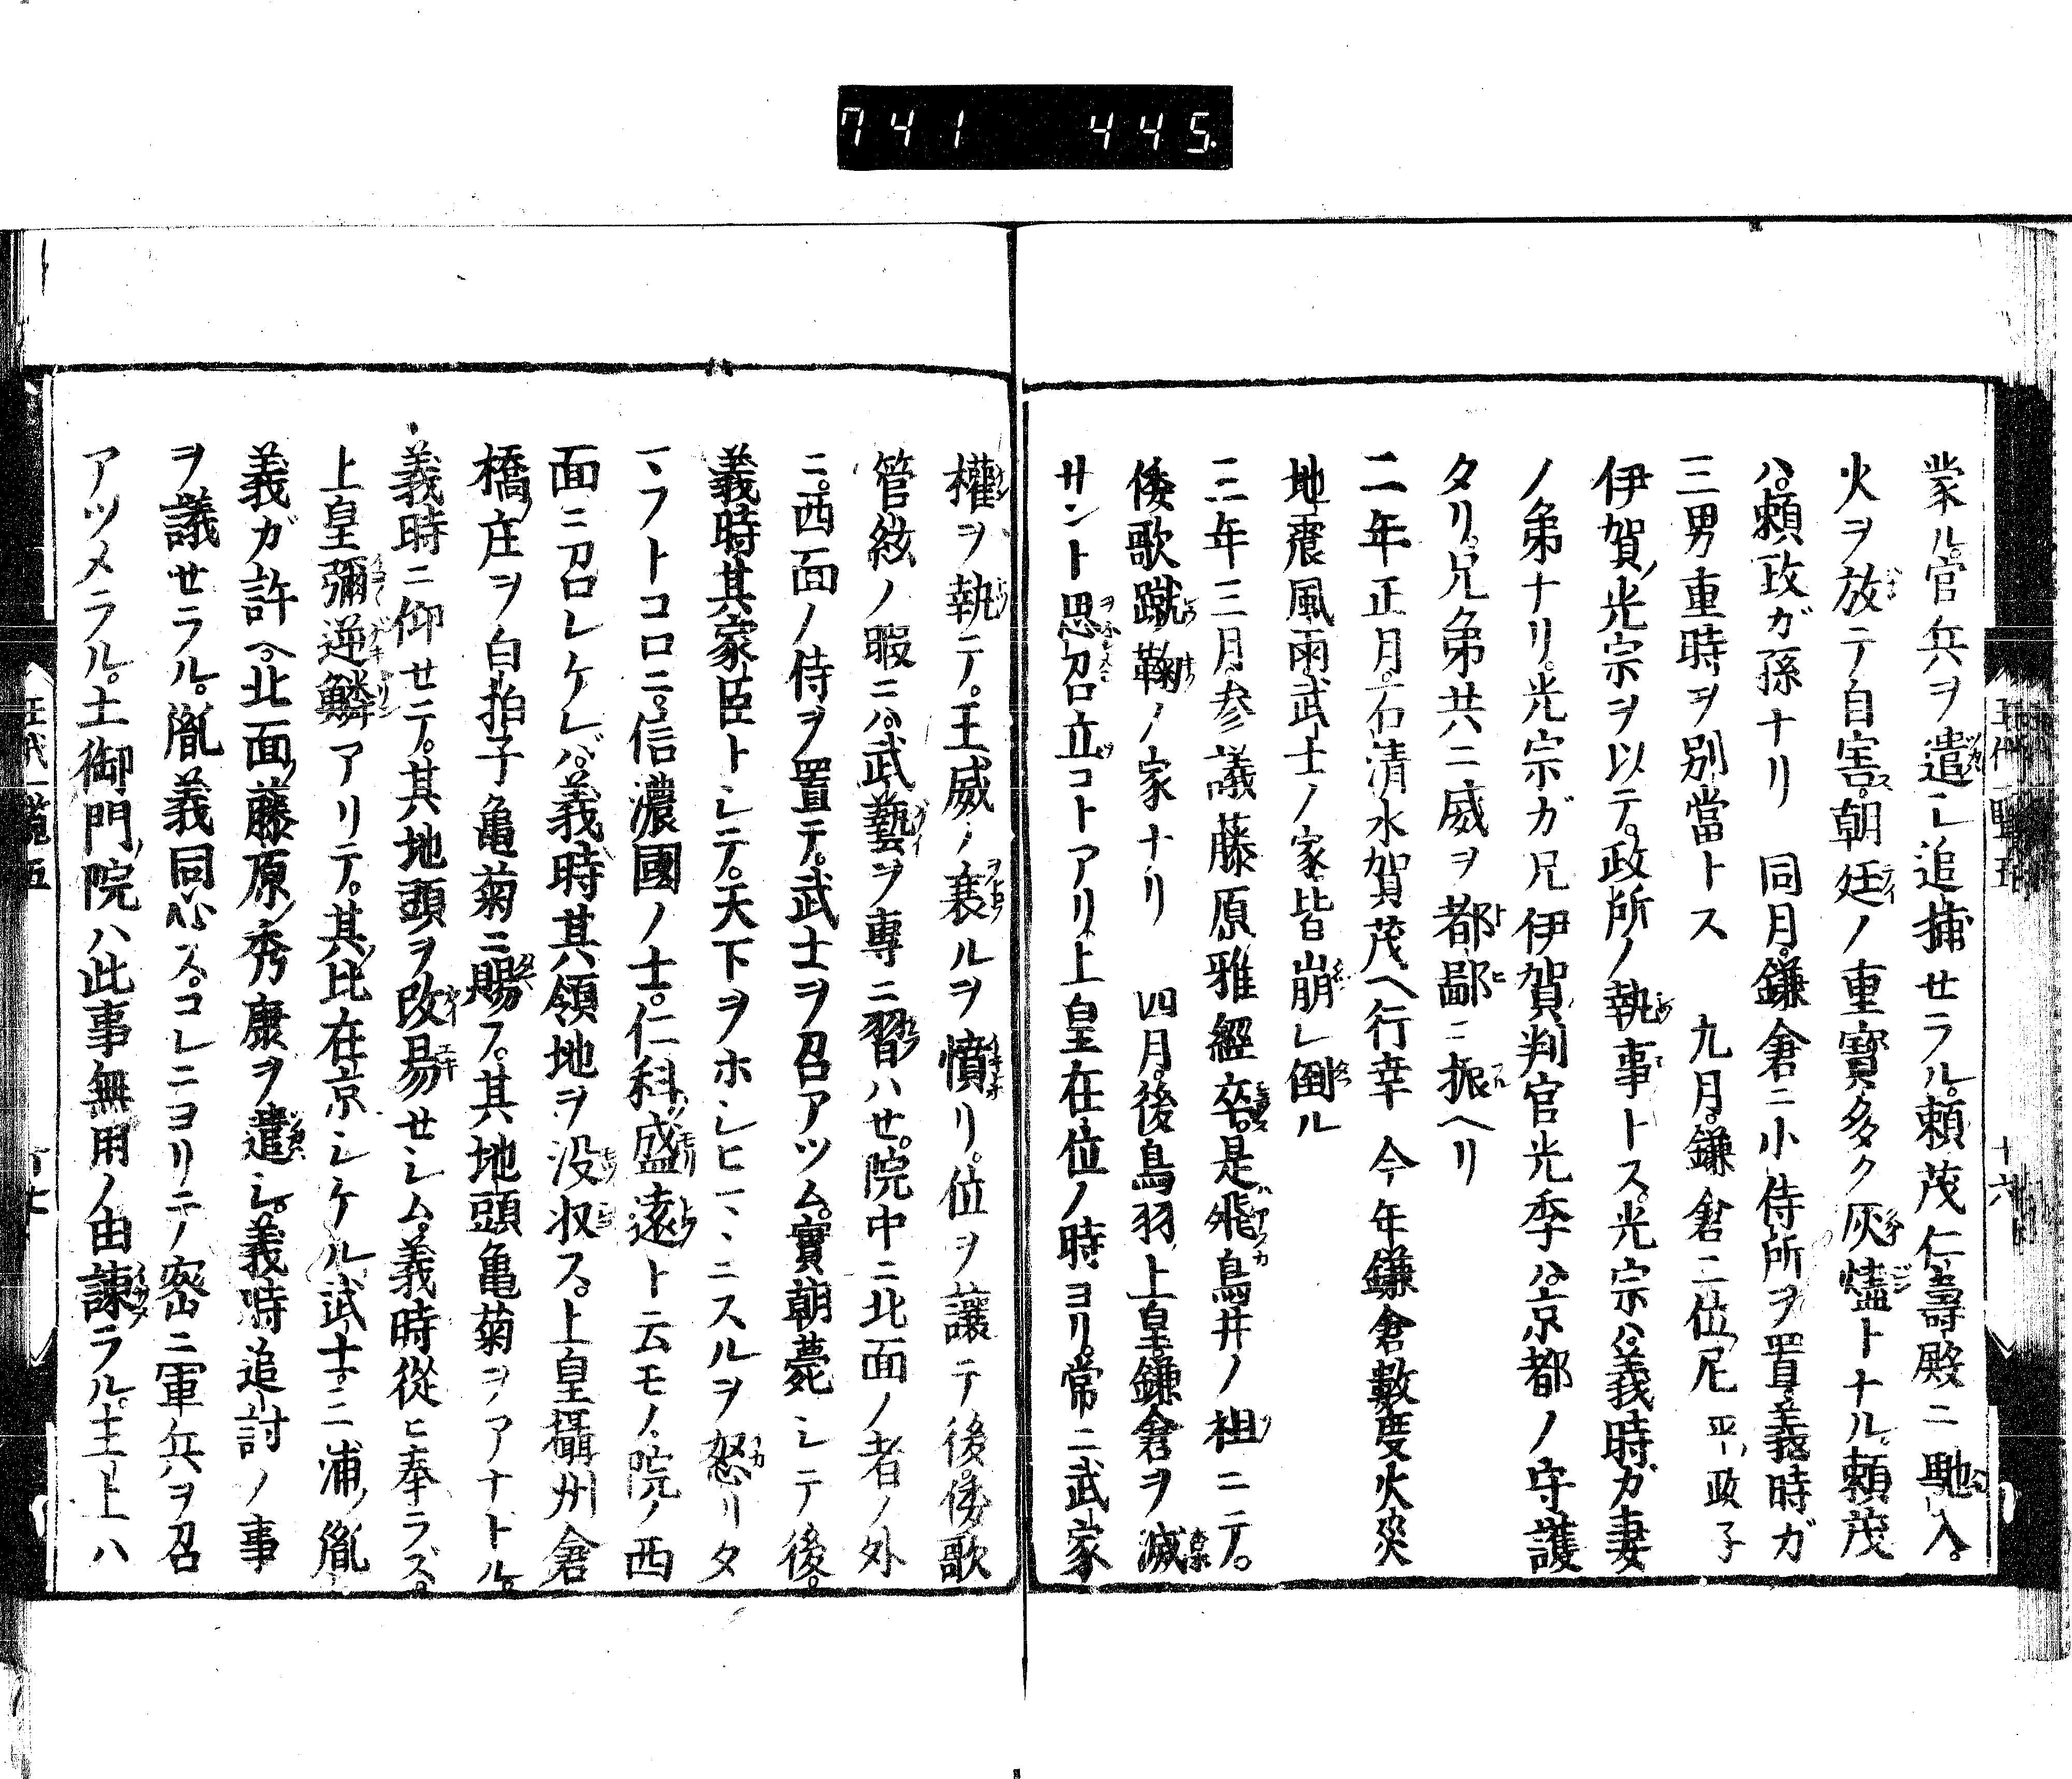 741 445.
蒙ル。官兵ヲ遣シ追捕セラル。頼茂仁壽殿ニ馳入。
火ヲ放テ自害ス。朝廷ノ重寳多ク灰燼トナル。頼茂
ハ。頼政ガ孫ナリ 同月。鎌倉ニ小侍所ヲ置。義時ガ
三男重時ヲ別當トス 九月。鎌倉二位ノ尼平ノ政子
伊賀ノ光宗ヲ以テ。政所ノ執事トス。光宗ハ。義時ガ妻
ノ弟ナリ。光宗ガ兄伊賀ノ判官光季ハ。京都ノ守護
タリ。兄弟共ニ威ヲ都鄙ニ振ヘリ
二年正月。石清水賀茂ヘ行幸 今年鎌倉數度火災
地震風雨。武士ノ家皆崩レ倒ル
三年三月。参議藤原雅經卒。是飛鳥井ノ祖ニテ。
倭歌蹴鞠ノ家ナリ 四月。後鳥羽上皇。鎌倉ヲ滅
サント思召立コトアリ。上皇在位ノ時ヨリ。常ニ武家
權ヲ執テ。王威ノ衰ルヲ憤リ。位ヲ讓テ後。倭歌
管絃ノ暇ニハ。武藝ヲ專ニ習ハセ。院中ニ北面ノ者ノ外
ニ。西面ノ侍ヲ置テ。武士ヲ召アツム。實朝薨シテ後。
義時其家臣トシテ。天下ヲホシヒマヽニスルヲ怒リタ
マフトコロニ。信濃國ノ士。仁科盛遠ト云モノ。院ノ西
面ニ召レケレバ。義時其領地ヲ没収ス。上皇攝州倉
橋ノ庄ヲ白拍子亀菊ニ賜フ。其地頭亀菊ヲアナトル。
義時ニ仰セテ。其地頭ヲ改易セシム。義時從ヒ奉ラズ。
上皇彌逆鱗アリテ。其比在京シケル武士。三浦ノ胤
義ガ許ヘ。北面ノ藤原ノ秀康ヲ遣シ。義時追討ノ事
ヲ議セラル。胤義同心ス。コレニヨリテ密ニ軍兵ヲ召
アツメラル。土御門ノ院ハ此事無用ノ由諫ラル。主上ハ